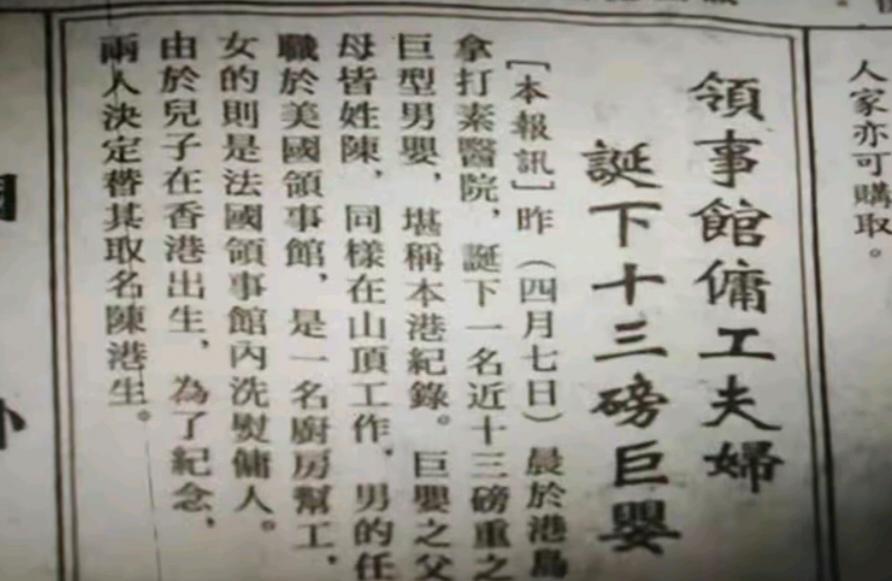 人家亦可購取。
領事館傭工夫婦
誕下十三磅巨嬰
［本報訊］昨（四月七日）晨於港島
拿打素醫院，誕下一名近十三磅重之
巨型男嬰，堪稱本港紀錄。巨嬰之父
母皆姓陳，同樣在山頂工作，男的任
職於美國領事館，是一名廚房幫工，
女的則是法國領事館內洗熨傭人。
由於兒子在香港出生，為了紀念，
兩人決定替其取名陳港生。